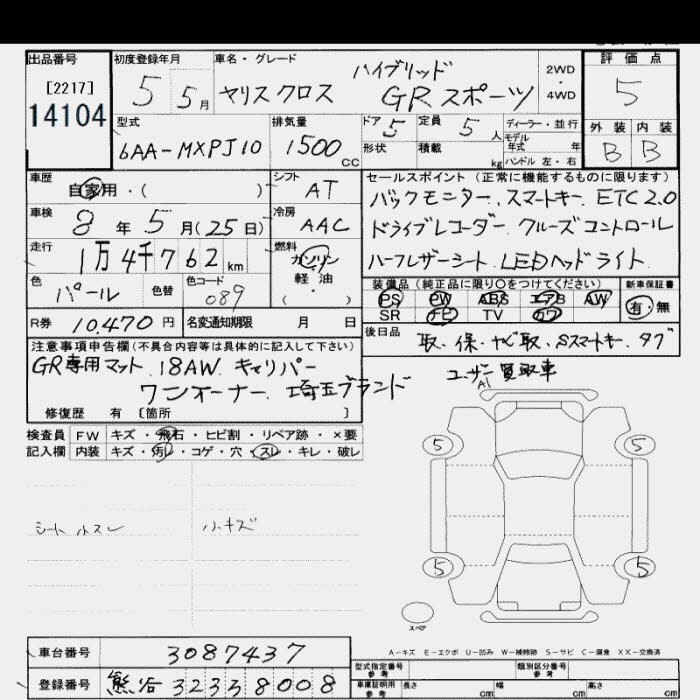 出品番号 初度登録年月 車名・グレード 評価点
[2217] 14104
5 5月 ヤリス クロス ハイブリッド GR スポーツ 2WD・4WD
5
型式 排気量 ドア 5 定員 5人 ディーラー・並行 外装 内装
6AA-MXPJ10 1500CC 形状 積載 kg モデル年式 年 ハンドル 左・右 B B
車歴 自家用・( ) シフト AT セールスポイント(正常に機能するものに限ります)
バックモニター、スマートキー、ETC2.0
車検 8年5月(25日) 冷房 AAC
ドライブレコーダー、クルーズコントロール
走行 1万4千762km 燃料 ガソリン 軽油・( )
ハーフレザーシート、LEDヘッドライト
色 パール 色替 色コード 089
装備品(純正品に限り○をつけてください) 新車保証書
PS PW ABS エアB AW 有・無
SR ナビ TV カワ
R券 10,470円 名変通知期限 月 日
後日品 取、保、ナビ取、Sスマートキー、タグ
注意事項申告欄(不具合内容等は具体的に記入して下さい)
GR専用マット、18AW、キャリパー
ワンオーナー、埼玉ブランド
ユーザー買取車
修復歴 有 [箇所 ]
A1
検査員記入欄 FW キズ・飛石・ヒビ割・リペア跡・×要
内装 キズ・汚レ・コゲ・穴・スレ・キレ・破レ
シート小スレ 小キズ
5 5
5 5
スペア
A-キズ E-エクボ U-凹み W-補修跡 S-サビ C-腐食 XX-交換済
車台番号 3087437
型式指定番号 参考 類別区分番号 参考
登録番号 熊谷 323 8008
車庫証明用 参考 長さ cm 幅 cm 高さ cm